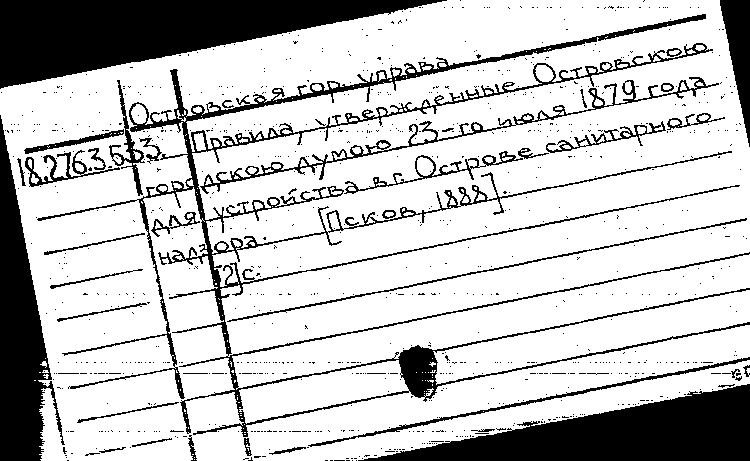 Островская гор. управа.
18.276.3.533. Правила, утвержденные Островскою
городскою думою 23-го июля 1879 года
для устройства в г. Острове санитарного
надзора. [Псков, 1888].
[2] с.